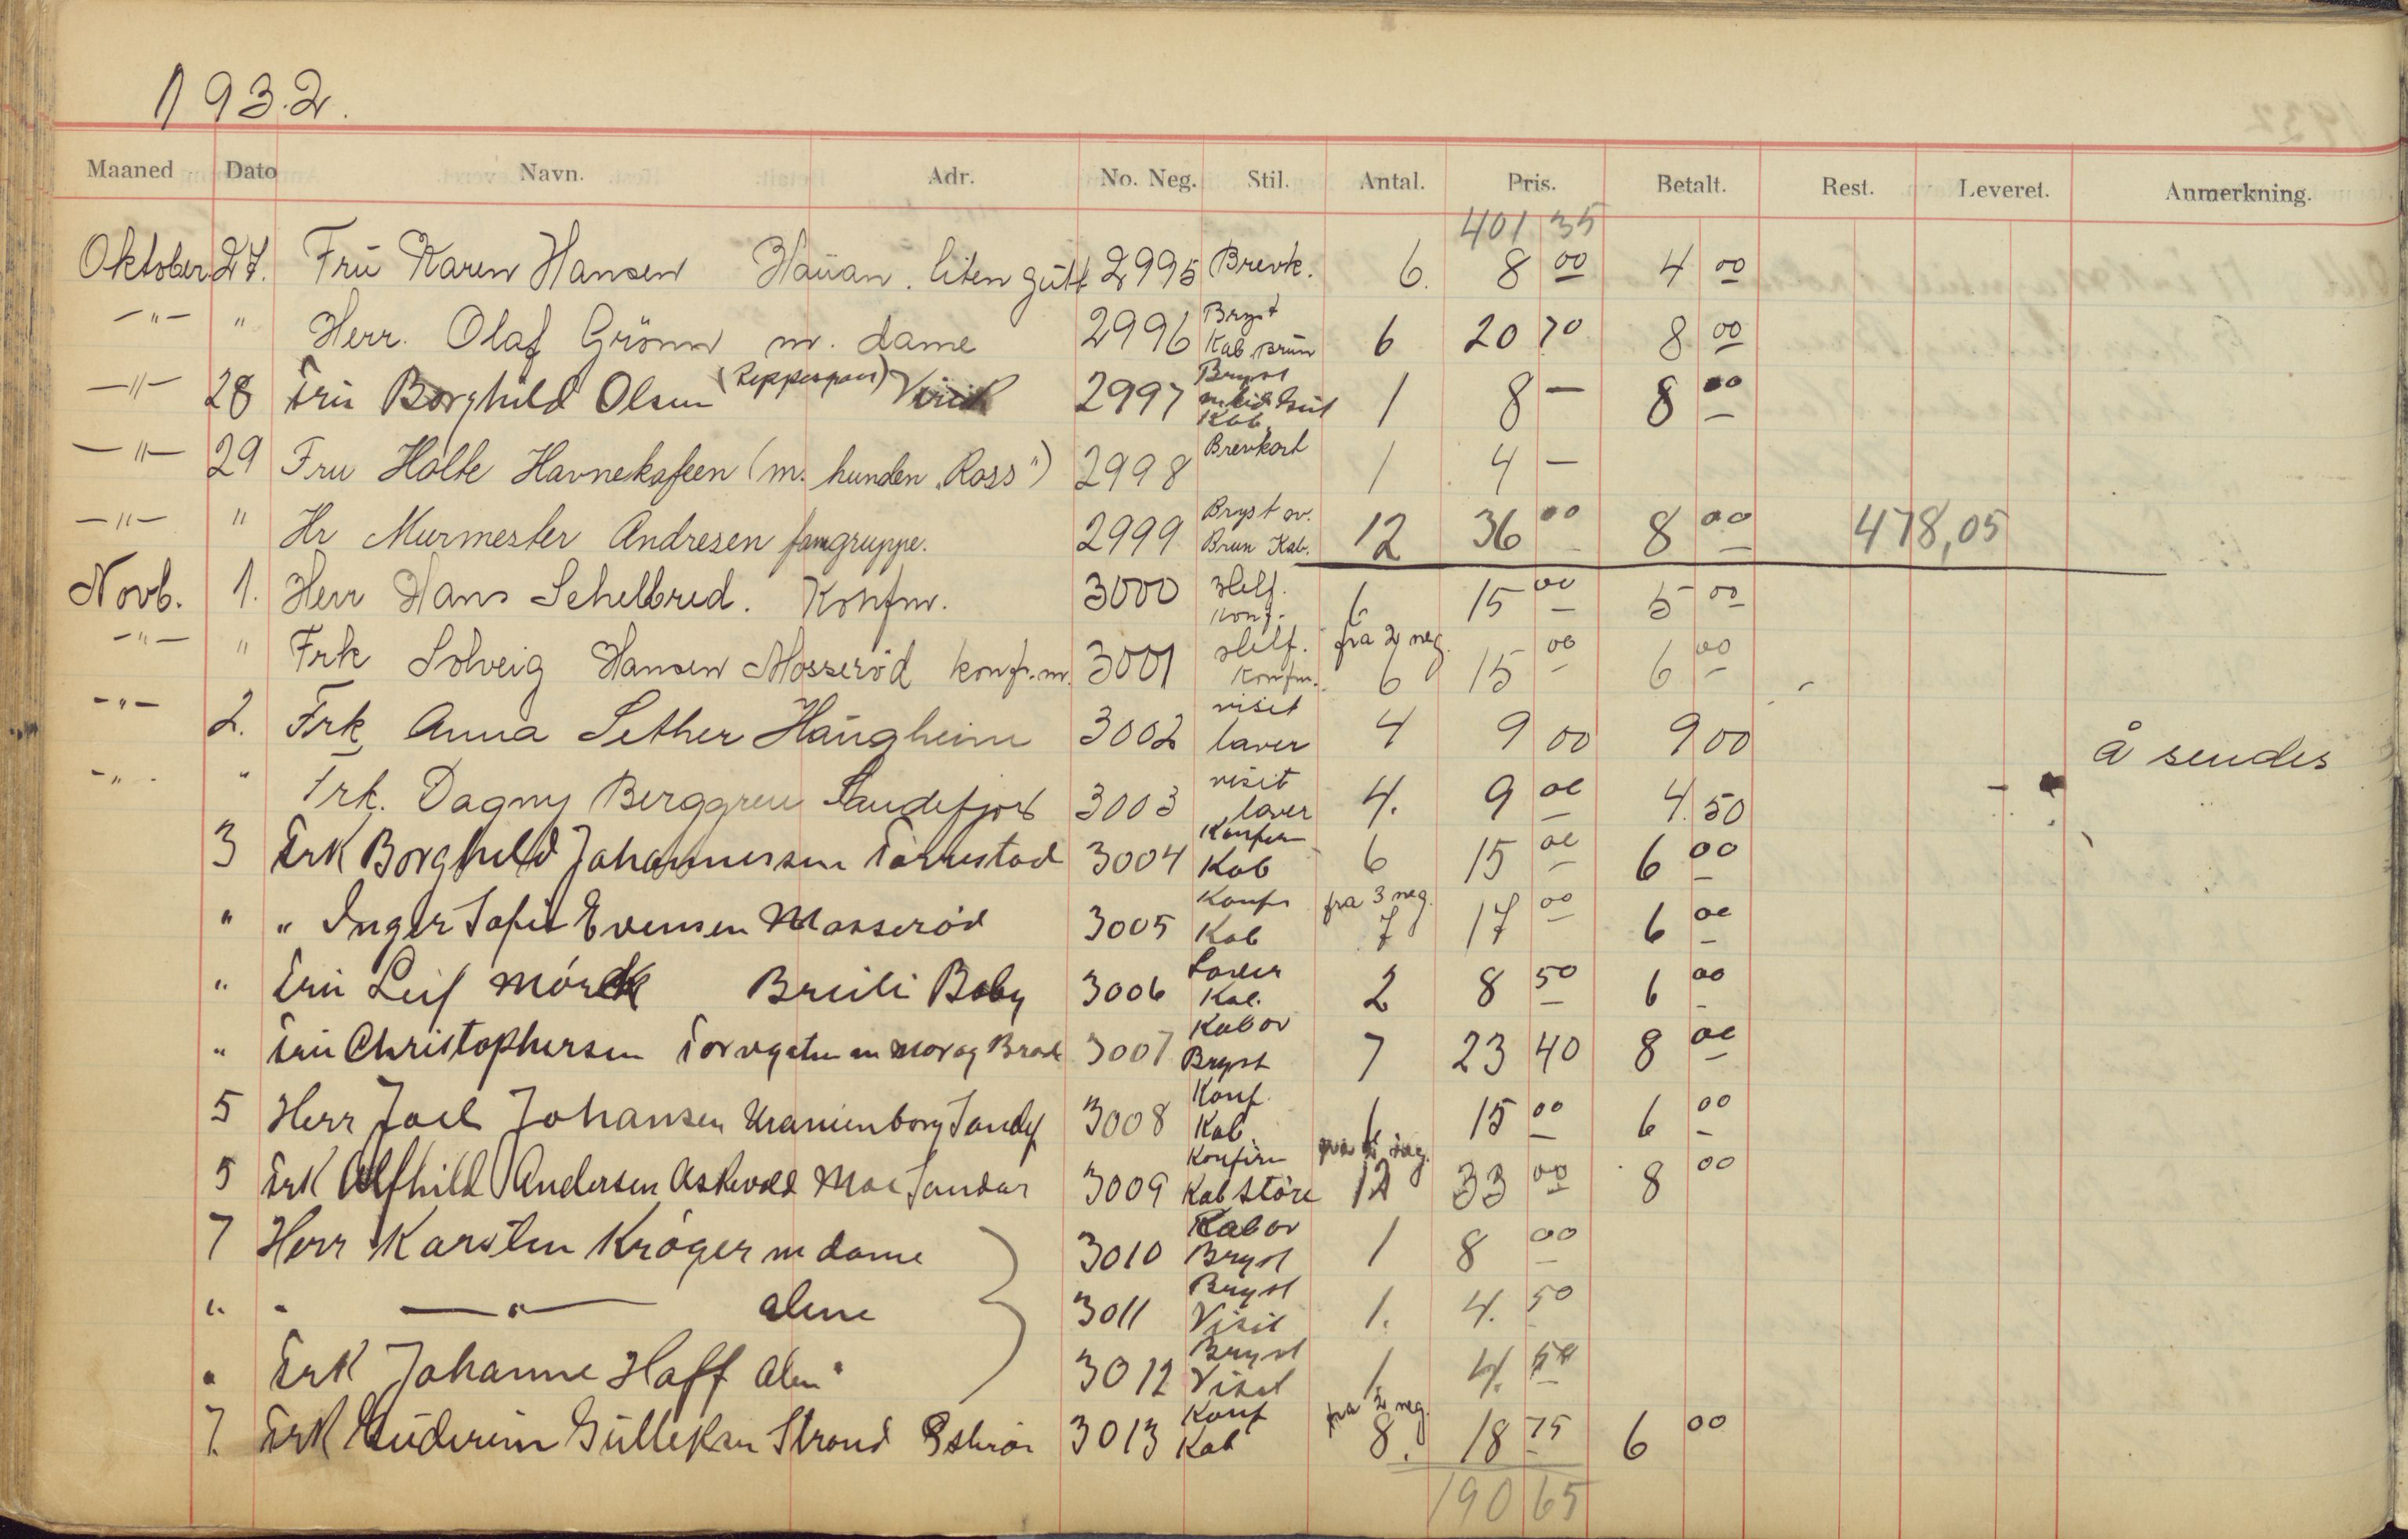 1932.
Maaned Dato Navn. Adr. No. Neg. Stil. Antal. Pris. Betalt. Rest. Leveret. Anmerkning.
401 35
Oktober 27. Frü Karen Hansen Haüan. liten gütt 2995 Brevk. 6. 8 00 4 00
-"- " Herr. Olaf Grönn m. dame 2996 Bryst Kab. Brün 6 20 70 8 00
-"- 28 Frü Borghild Olsen 2997 Bryst Kab 1 8 - 8 00
-"- 29 Fru Holte Havnekafeen (m. hunden "Ross") 2998 Brevkort 1 4 -
-"- " Hr Murmester Andresen famgruppe. 2999 Bryst ov. Brun Kab. 12 36 00 8 00 478,05
Novb. 1. Herr Hans Schelbred. Konfm. 3000 Helf. Konf. 6 15 00 5 00
-"- " Frk Solveig Hansen Mosseröd konfr.m. 3001 Helf. Konfm. fra 2 neg. 6 15 00 6 00
-"- 2. Frk. Anna Sether Haügheim 3002 visit laver 4 9 00 9 00 å sendes
-"- " Frk. Dagny Berggren Sandefjord 3003 visit laver 4. 9 00 4.50
3 Frk Borghild Johannessen Torrestad 3004 Konfir Kab 6 15 00 6 00
" " Inger Sofie Evensen Mosseröd 3005 Konfr Kab fra 3 neg. 7 17 00 6 00
" Frü Leif Mörck Breili Baby 3006 Laver Kab. 2 8 50 6 00
" Frü Christophersen Torvgaten m Mor og Bror 3007 Kab ov Bryst 7 23 40 8 00
5 Herr Joel Johansen Uranienborg Sandef 3008 Konf. Kab 6 15 00 6 00
5 Frk Alfhild Andersen Askevold Moe Sandar 3009 Konfirm Kab Störe 12 33 00 8 00
7 Herr Karsten Kröger m dame 3010 Kab ov Bryst 1 8 00
" " -"- alene 3011 Bryst Visit 1. 4. 50
" Frk Johanne Hoff alen" 3012 Bryst Visit 1 4. 50
7. Frk Gülleksen Strand 3013 Konf Kab fra 2 neg. 8. 18 75 6 00
190 65